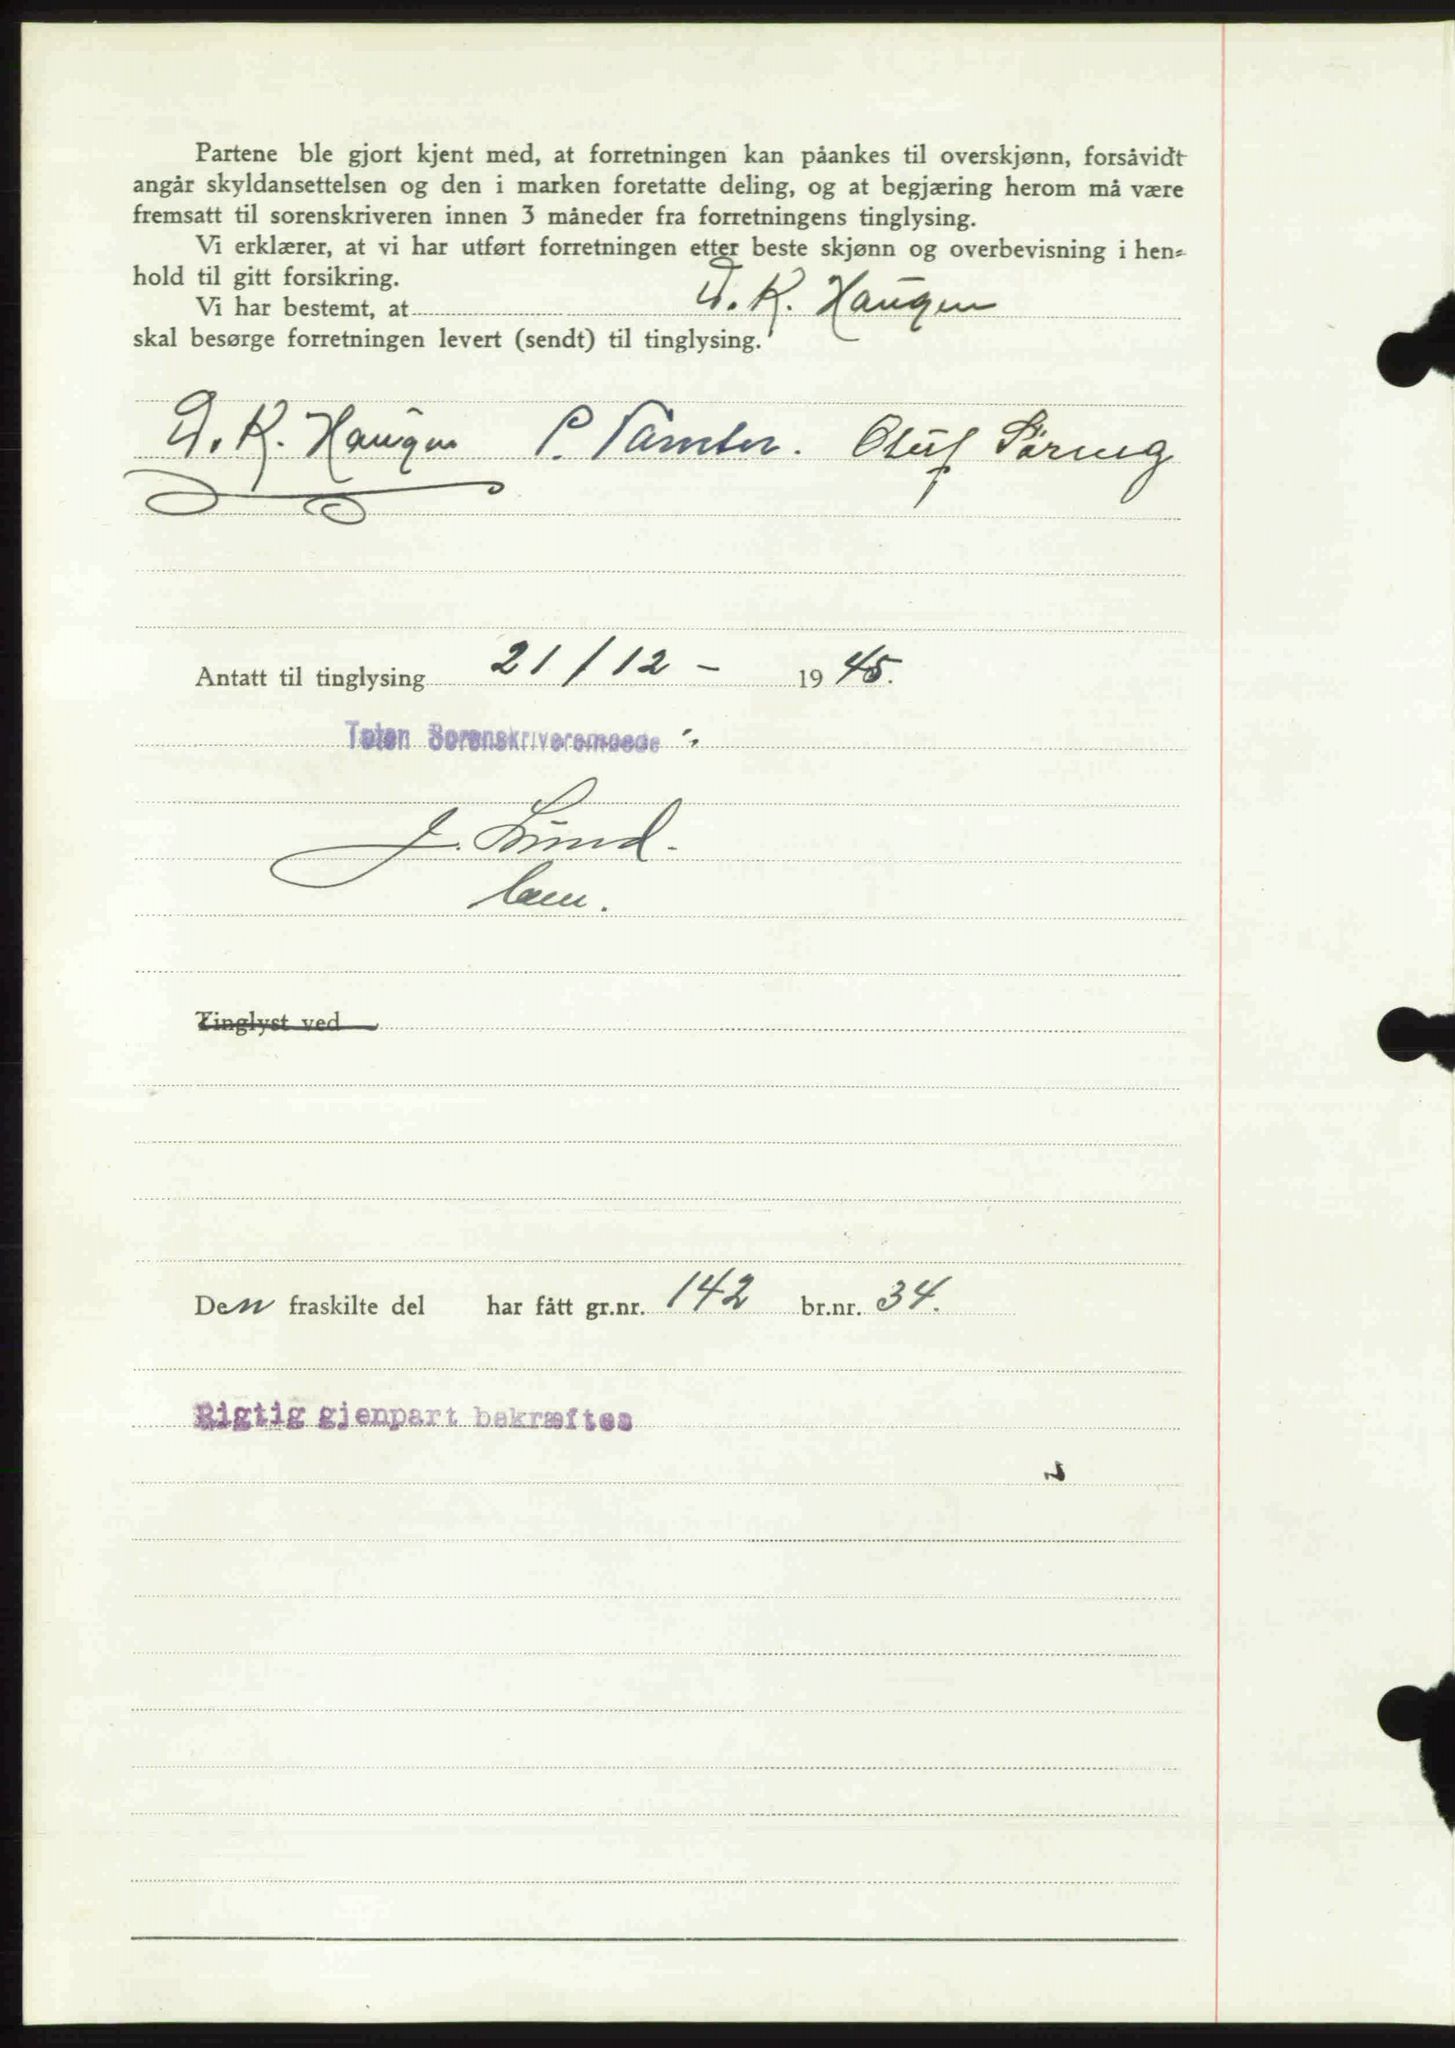 Partene ble gjort kjent med, at forretningen kan påankes til overskjønn, forsåvidt
angår skyldansettelsen og den i marken foretatte deling, og at begjæring herom må være
fremsatt til sorenskriveren innen 3 måneder fra forretningens tinglysing.
Vi erklærer, at vi har utført forretningen etter beste skjønn og overbevisning i hen-
hold til gitt forsikring.
Vi har bestemt, at D. K. Haugen
skal besørge forretningen levert (sendt) til tinglysing.
D. K. Haugen P. Oluf
Antatt til tinglysing 21/12 - 1945.
Toten Sorenskriverembede
J. Lund.
Tinglyst ved
Den fraskilte del har fått gr.nr. 142 br.nr. 34.
Rigtig gjenpart bekræftes